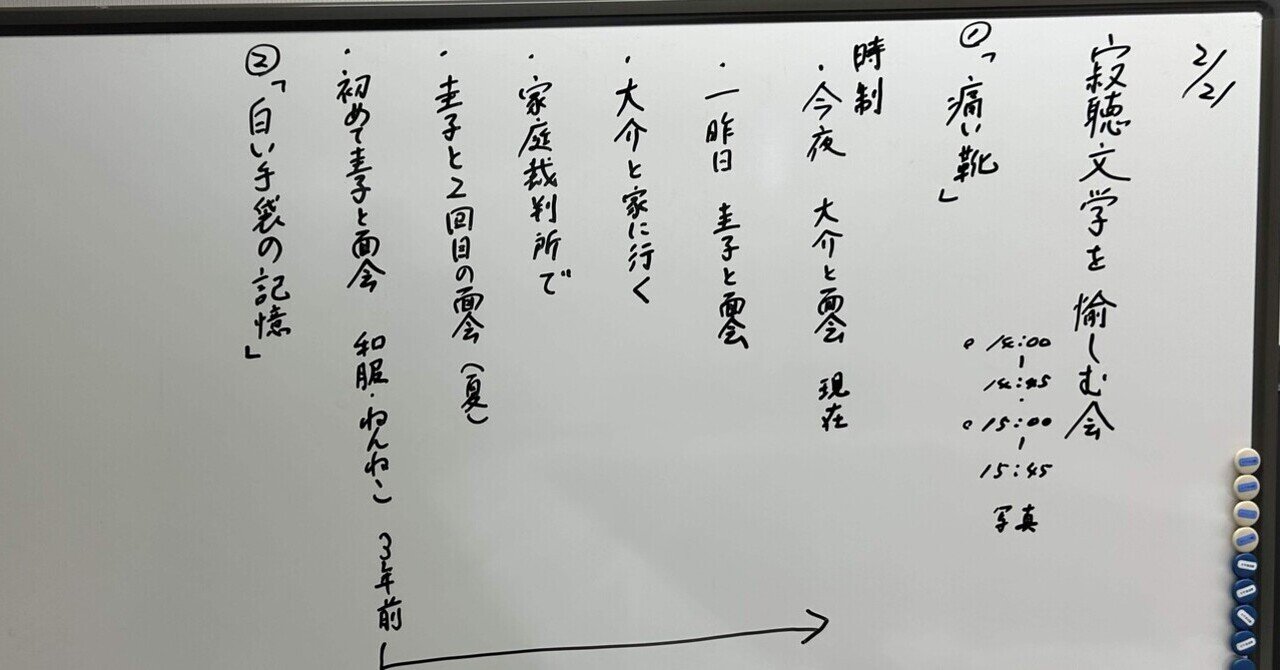 2/21
寂聴文学を 愉しむ会
・14:00
|
14:45
・15:00
|
15:45
写真
①「痛い靴」
時制
・今夜 大介と面会 現在
・一昨日 圭子と面会
・大介と家に行く
・家庭裁判所で
・圭子と2回目の面会(夏)
・初めて圭子と面会 和服・ねんねこ 3年前
②「白い手袋の記憶」